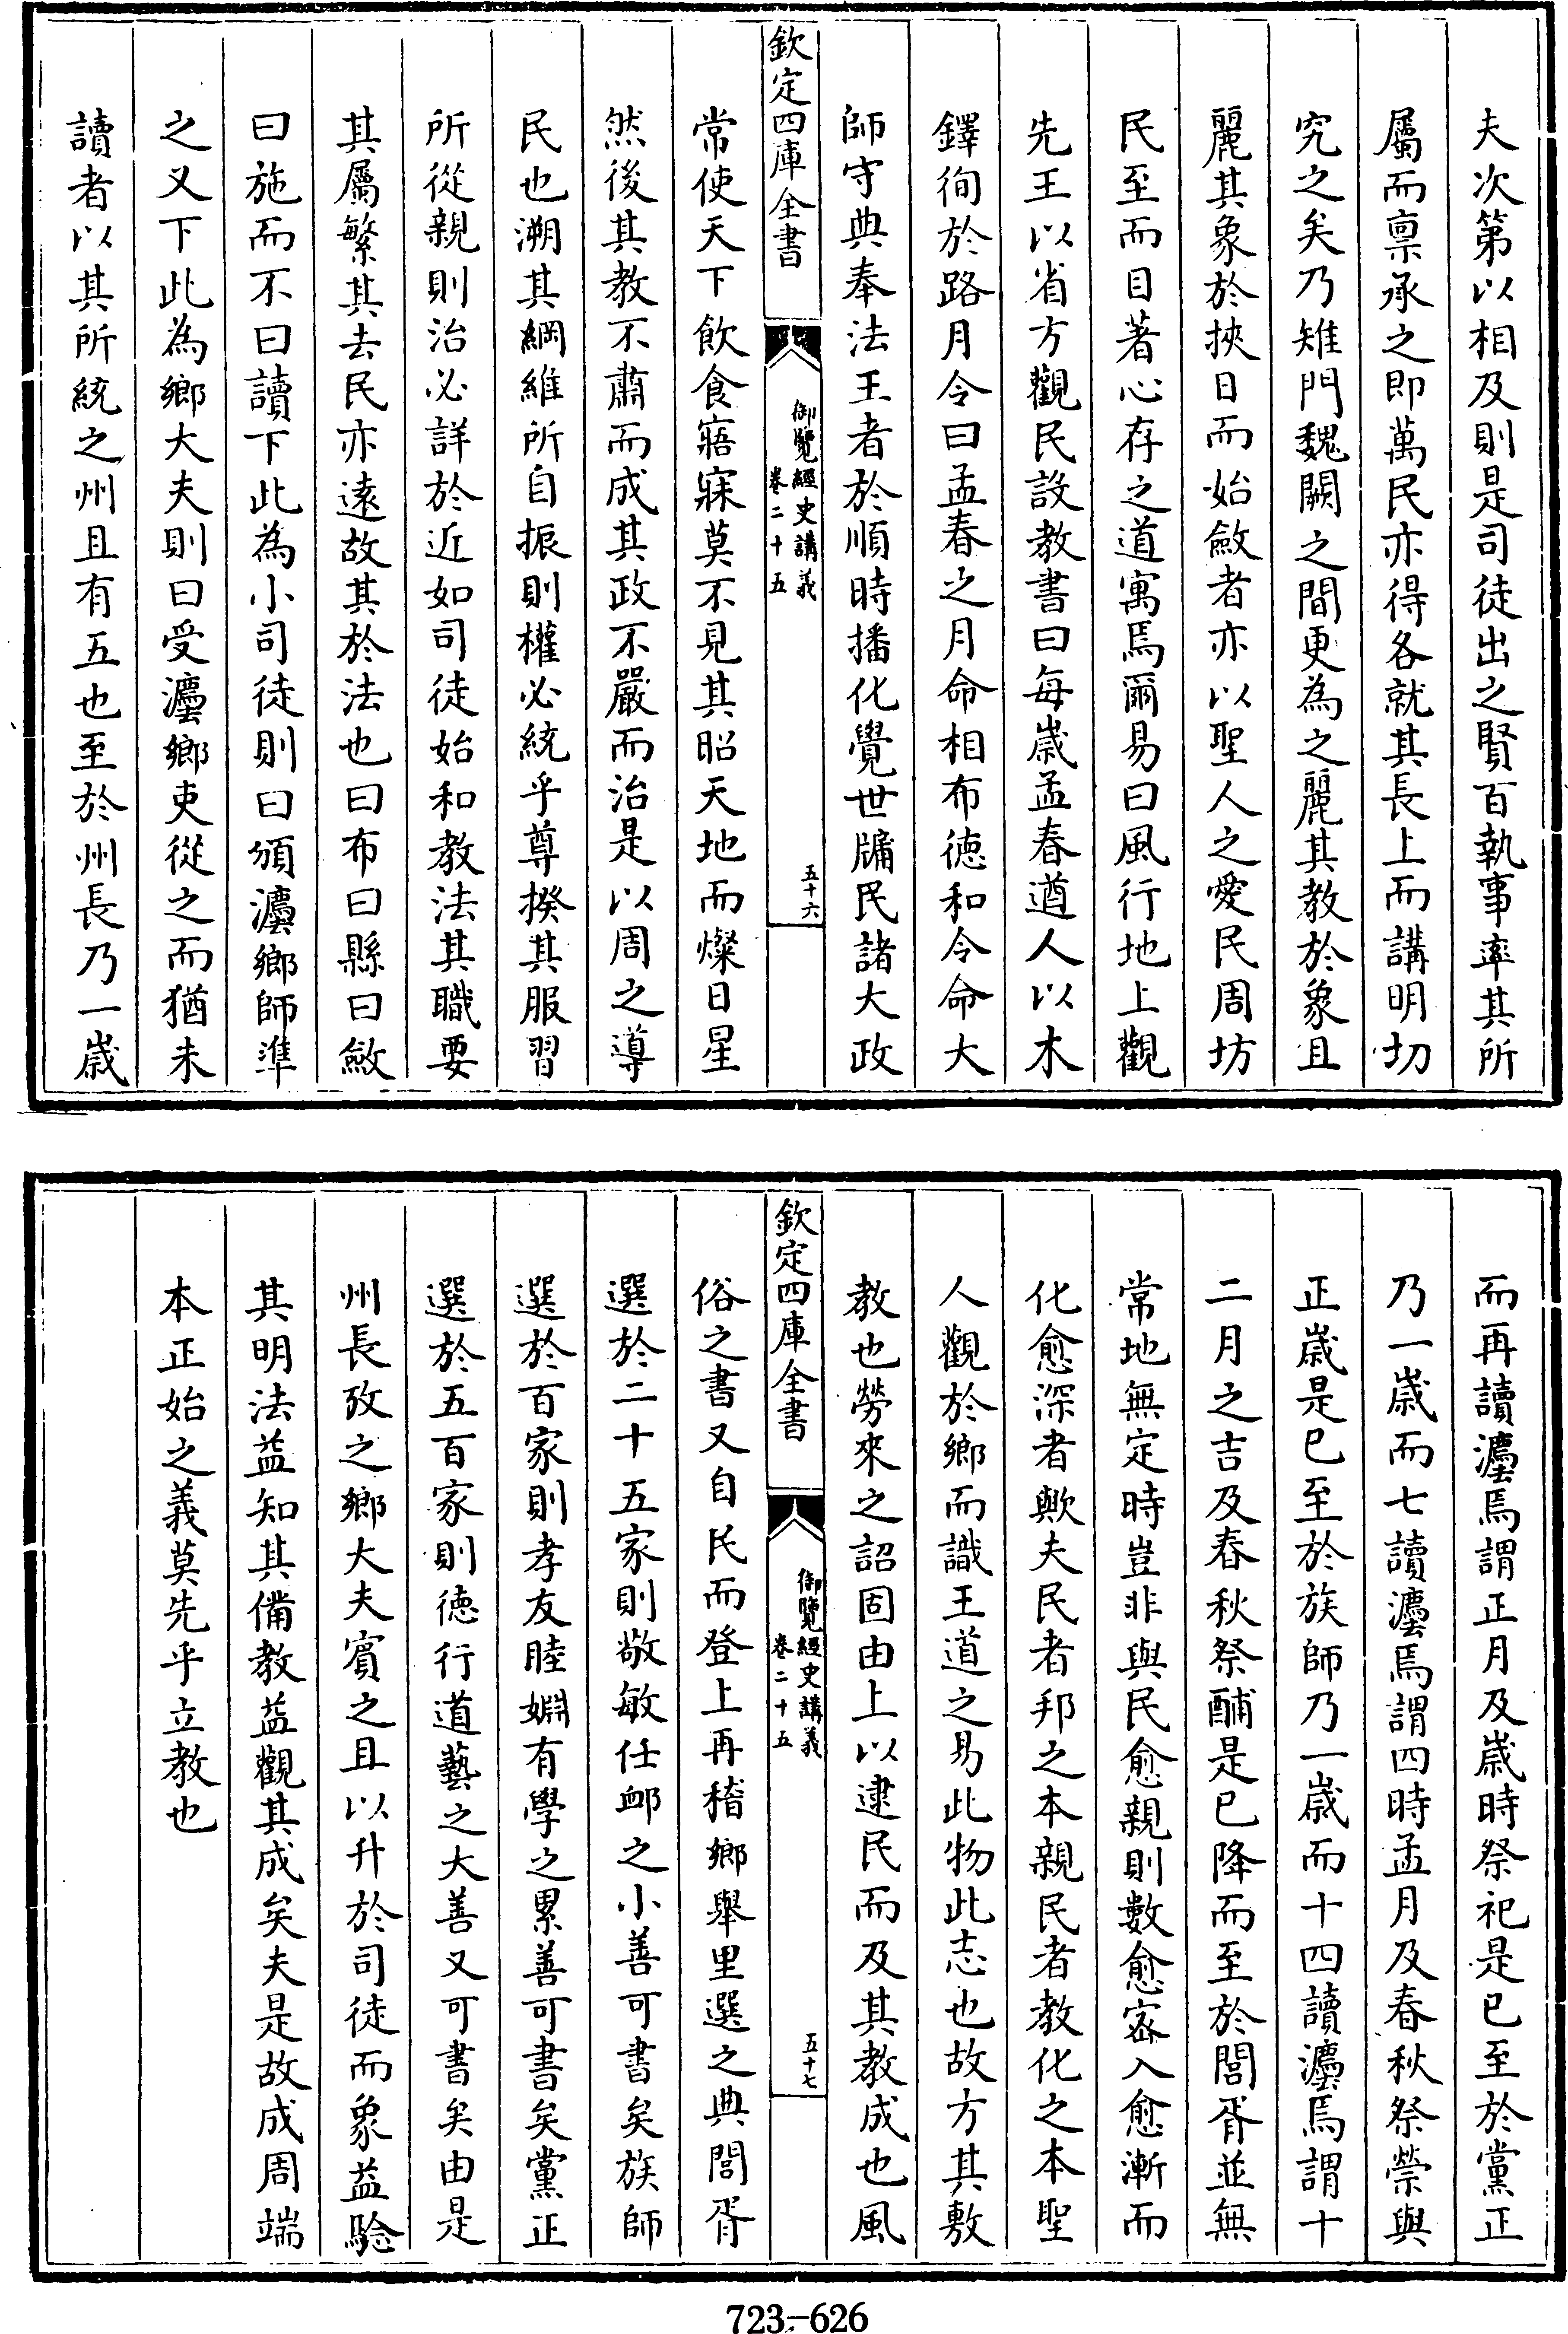 夫次第以相及則是司徒出之賢百執事率其所
屬而禀承之即萬民亦得各就其長上而講明切
究之矣乃雉門魏闕之間更為之麗其教於象且
麗其象於挾日而始斂者亦以聖人之愛民周坊
民至而目著心存之道寓焉爾易曰風行地上觀
先王以省方觀民設教書曰每嵗孟春遒人以木
鐸徇於路月令曰孟春之月命相布徳和令命大
師守典奉法王者於順時播化覺世牖民諸大政
欽定四庫全書
御覽經史講義
卷二十五
五十六
常使天下飲食寤寐莫不見其昭天地而燦日星
然後其教不肅而成其政不嚴而治是以周之導
民也溯其綱維所自振則權必統乎尊揆其服習
所從親則治必詳於近如司徒始和教法其職要
其屬繁其去民亦逺故其於法也曰布曰縣曰斂
曰施而不曰讀下此為小司徒則曰頒灋鄉師準
之又下此為鄉大夫則曰受灋鄉吏從之而猶未
讀者以其所統之州且有五也至於州長乃一嵗
而再讀灋焉謂正月及嵗時祭祀是已至於黨正
乃一嵗而七讀灋焉謂四時孟月及春秋祭禜與
正嵗是已至於族師乃一嵗而十四讀灋焉謂十
二月之吉及春秋祭酺是已降而至於閭胥並無
常地無定時豈非與民愈親則數愈密入愈漸而
化愈深者歟夫民者邦之本親民者教化之本聖
人觀於鄉而識王道之易此物此志也故方其敷
教也勞來之詔固由上以逮民而及其教成也風
欽定四庫全書
御覽經史講義
卷二十五
五十七
俗之書又自民而登上再稽鄉舉里選之典閭胥
選於二十五家則敬敏任卹之小善可書矣族師
選於百家則孝友睦婣有學之累善可書矣黨正
選於五百家則徳行道藝之大善又可書矣由是
州長攷之鄉大夫賓之且以升於司徒而象益騐
其明法益知其備教益觀其成矣夫是故成周端
本正始之義莫先乎立教也
723-626